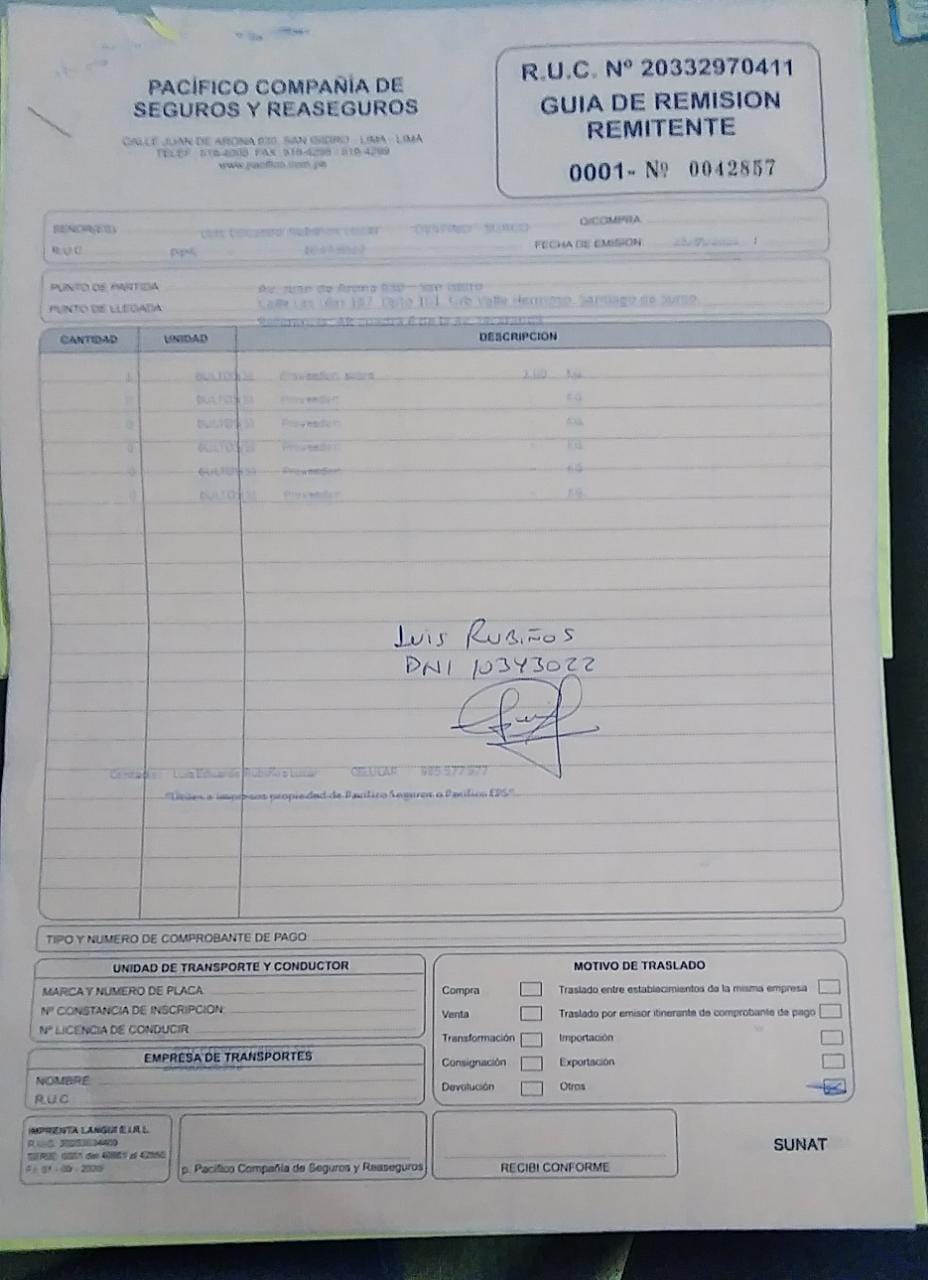 PACÍFICO COMPAÑÍA DE
SEGUROS Y REASEGUROS
CALLE JUAN DE ARONA 830, SAN ISIDRO - LIMA - LIMA
TELEF. 518-4000 FAX 518-4295 / 518-4299
www.pacifico.com.pe
R.U.C. Nº 20332970411
GUIA DE REMISION
REMITENTE
0001- Nº 0042857
SEÑOR(ES) Luis Eduardo Rubiños Lucar DESTINO SURCO
O/COMPRA
R.U.C.
FECHA DE EMISION
PUNTO DE PARTIDA Av. Juan de Arona 830 - San Isidro
PUNTO DE LLEGADA Calle Las 187. Dpto 101. Urb Valle Hermoso. Santiago de Surco
CANTIDAD UNIDAD DESCRIPCION
1 BULTO(S) Proveedor: 1.00 KG
0 BULTO(S) Proveedor: - KG
0 BULTO(S) Proveedor: - KG
0 BULTO(S) Proveedor: - KG
0 BULTO(S) Proveedor: - KG
0 BULTO(S) Proveedor: - KG
LUIS RUBIÑOS
DNI 10343022
Contacto: Luis Eduardo Rubiños Lucar CELULAR 985 577 977
"Útiles e impresos propiedad de Pacífico Seguros o Pacífico EPS"
TIPO Y NUMERO DE COMPROBANTE DE PAGO
UNIDAD DE TRANSPORTE Y CONDUCTOR
MARCA Y NUMERO DE PLACA
Nº CONSTANCIA DE INSCRIPCION
Nº LICENCIA DE CONDUCIR
EMPRESA DE TRANSPORTES
NOMBRE
R.U.C
MOTIVO DE TRASLADO
Compra
Venta
Transformación
Consignación
Devolución
Traslado entre establecimientos de la misma empresa
Traslado por emisor itinerante de comprobante de pago
Importación
Exportación
Otros
IMPRENTA LANGUI E.I.R.L.
p. Pacífico Compañía de Seguros y Reaseguros
RECIBI CONFORME
SUNAT